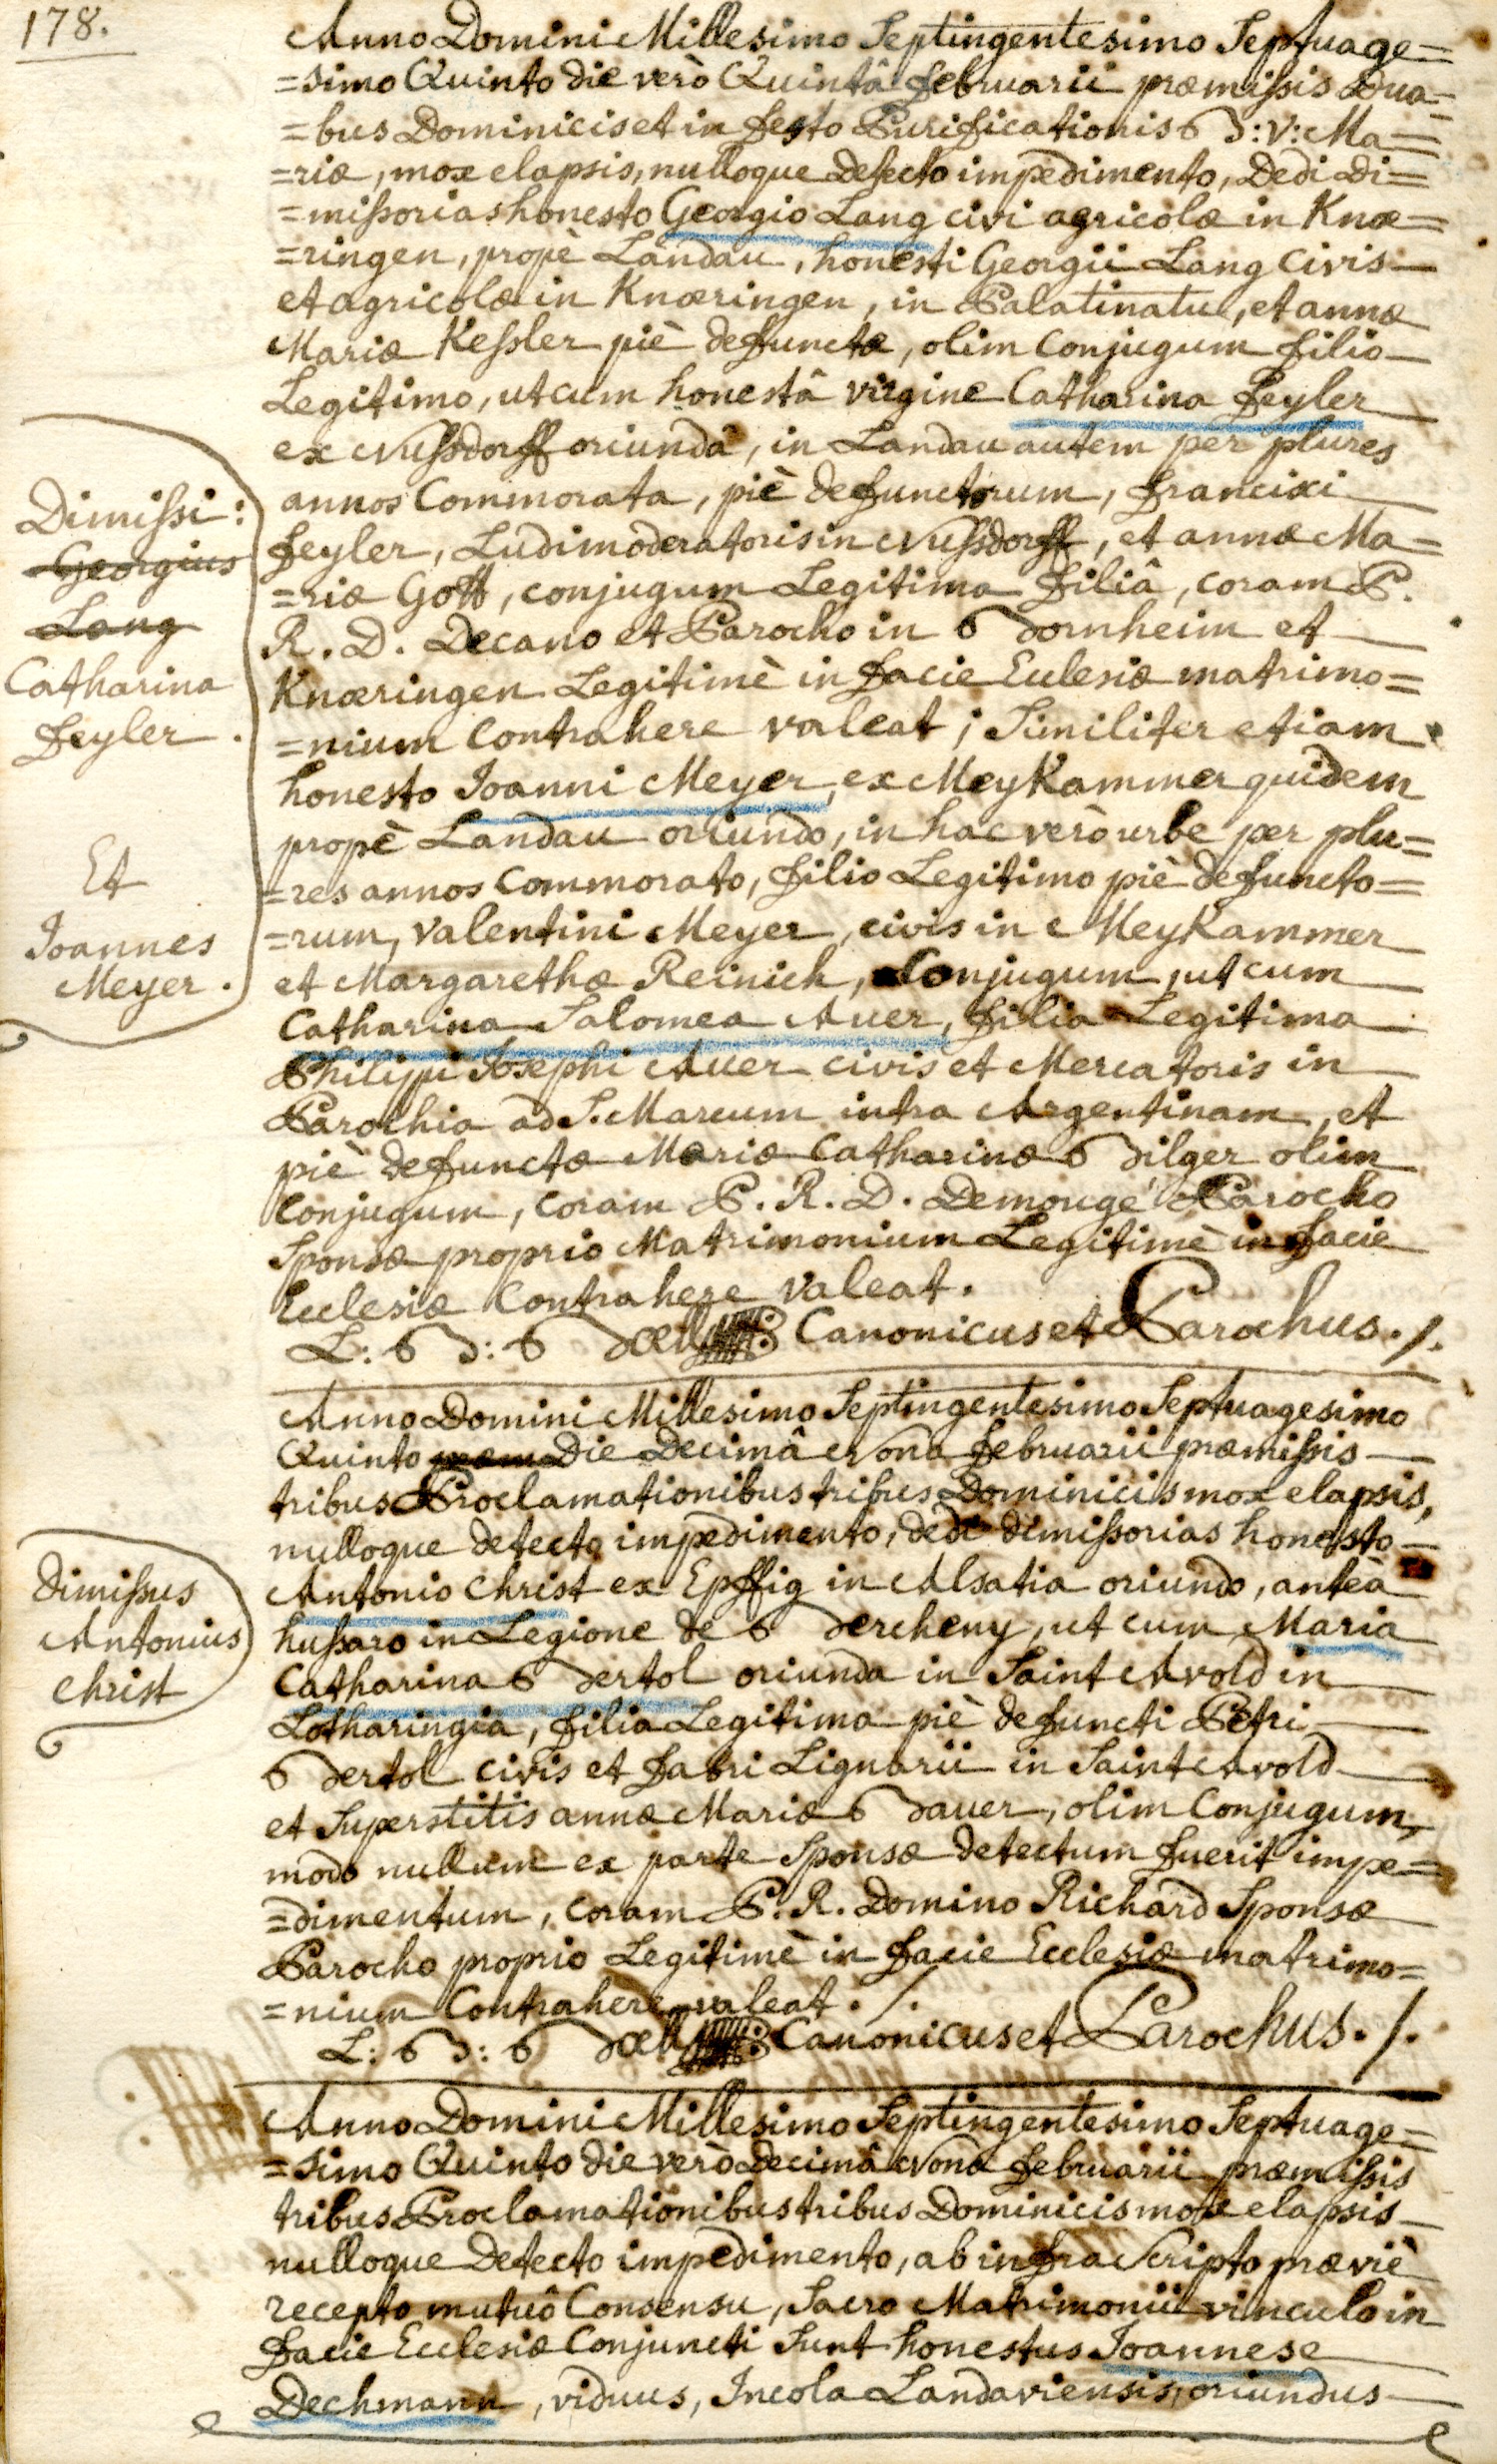 178.
Anno Domini Millesimo Septingentesimo Septuage=
=simo Quinto die verò Quintâ februarii præmissis Dua=
=bus Dominicis et in festo Purificationis B: V: Ma=
=riæ, mox elapsis, nulloque detecto impedimento, Dedi Di=
=missorias honesto Georgio Lang civi agricolæ in Knæ=
=ringen, propè Landau, honesti Georgii Lang Civis
et agricolæ in Knæringen, in Palatinatu, et annæ
Mariæ Kessler piè defunctæ, olim Conjugum filio
Legitimo, ut cum honestâ virgine Catharina feyler
ex Nussdorff oriundâ, in Landau autem per plures
annos Commorata, piè defunctorum, francisci
feyler, Ludimoderatoris in Nussdorff, et annæ Ma=
=riæ Gott, conjugum Legitima filiâ, coram P.
R. D. Decano et Parocho in Bornheim et
Knæringen Legitimè in facie Eclesiæ matrimo=
=nium Contrahere valeat; Similiter etiam
honesto Joanni Meyer, ex MeyKammer quidem
propè Landau oriundo, in hac verò urbe per plu=
=res annos Commorato, filio Legitimo piè defuncto=
=rum, Valentini Meyer, civis in MeyKammer
et Margarethæ Reinich, Conjugum, ut cum
Catharina Salomea Auer, filia Legitima
Philippi Josephi Auer civis et Mercatoris in
Parochia ad S. Marcum intra Argentinam, et
piè defunctæ Mariæ Catharinæ Bilger olim
Conjugum, coram P. R. D. Demougé Parocho
Sponsæ proprio Matrimonium Legitimè in facie
Ecclesiæ Contrahere valeat.
L: B: Bœll Canonicus et Parochus./.
Dimissi:
Georgius
Lang
Catharina
feyler.
Et
Joannes
Meyer.
Anno Domini Millesimo Septingentesimo Septuagesimo
Quinto præm Die Decimâ Nona februarii præmissis
tribus Proclamationibus tribus Dominicis mox elapsis,
nulloque detecto impedimento, dedi dimissorias honesto
Antonio Christ ex Epffig in Alsatia oriundo, anteà
hussaro in Legione de Bercheny, ut cum Maria
Catharina Bertol oriunda in Saint Avold in
Lotharingia, filia Legitima piè defuncti Petri
Bertol civis et fabri Lignarii in Saint Avold
et Superstitis annæ Mariæ Bauer, olim Conjugum,
modo nullum ex parte Sponsæ detectum fuerit impe=
=dimentum, coram P. R. Domino Richard Sponsæ
Parocho proprio Legitimè in facie Ecclesiæ matrimo=
=nium Contrahere valeat./.
L: B: Bœll Canonicus et Parochus./.
Dimissus
Antonius
Christ
Anno Domini Millesimo Septingentesimo Septuage=
=simo Quinto die verò Decimâ Nonâ februarii præmissis
tribus Proclamationibus tribus Dominicis mox elapsis
nulloque Detecto impedimento, ab infra Scripto præviè
recepto mutuô Consensu, Sacro Matrimonii vinculo in
facie Ecclesiæ Conjuncti Sunt honestus Joannes
Dechmann, viduus, Incola Landaviensis, oriundus